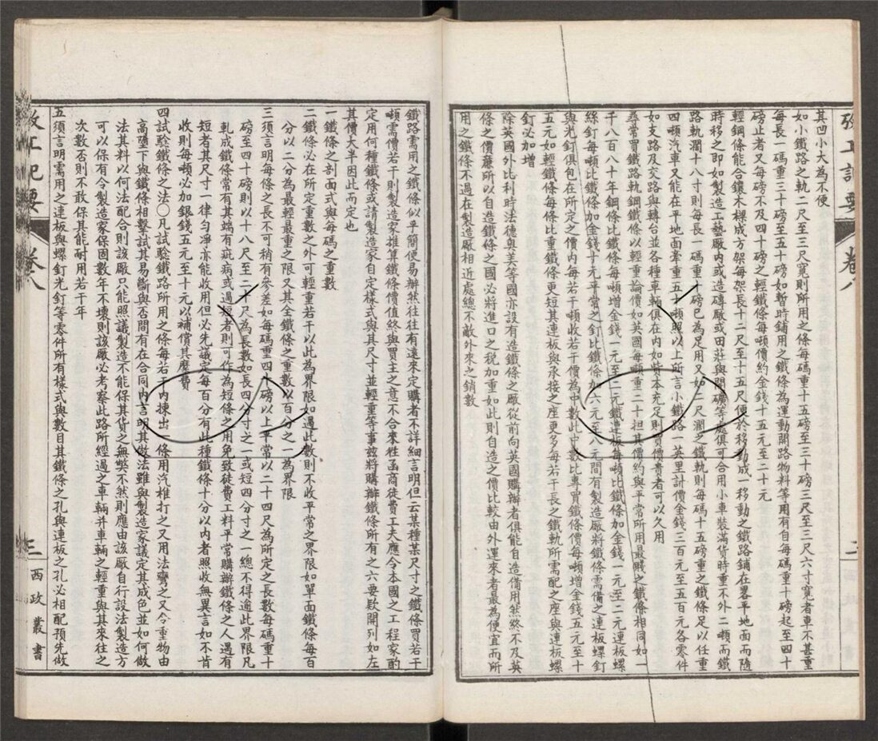 其凹小大為不便
如小鐵路之軌二尺至三尺寬則所用之條每碼重十五磅至三十磅三尺至三尺六寸寬者車不甚重
每長一碼重三十磅至五十磅如暫時鋪用之鐵條為運動開路物料等用有自每碼重十磅起至四十
磅止者又每磅不及四十磅之輕鐵條每頓價約金錢十五元至二十元
輕鋼條能合鑲木樑成方架每架長十二尺至十五尺便於移動成一移動之鐵路鋪在畧平地面而隨
時移之即如製造工藝廠內或造磚廠或田莊與開礦等處俱可合用小車裝滿貨時重不外二頓而鐵
路軌濶十八寸則每長一碼重十磅已為足用又如二尺濶之鐵軌則每碼十五磅重之鐵條足以任重
四頓汽車又能在平地面牽重五十頓照以上所言小鐵路一英里計價金錢三百元至五百元各零件
如支路及交路與轉台並各種車輛俱在內如資本充足則買價貴者可以久用
尋常買鐵路軌鋼鐵條以輕重論價如英國每頓重二十担其價約與平常所用最賤之鐵條相同如一
千八百八十年鋼條比鐵條每頓增金錢一元至二元鐵連板每頓比鐵條加金錢一元至二元連板螺
絲釘每頓比鐵條加金錢十元平常之釘比鐵條加六元至八元間有製造廠料鐵條需備之連板螺釘
與光釘俱包在所定之價內每若干頓收若干價為中數此中數比專買鐵條價每頓增金錢五元至十
五元如輕鐵條每條比重鐵條更短其連板與承接之座更多每若干長之鐵軌所需配之座與連板螺
釘必加增
除英國外比利時法德奧美等國亦設有造鐵條之廠從前向英國購辦者俱能自造備用然終不及英
條之價廉所以自造鐵條之國必將進口之稅加重如此則自造之價比較由外運來者最為便宜而所
用之鐵條不過在製造廠相近處總不敵外來之銷數
鐵路需用之鐵條似乎簡便易辦然往往有遠來定購者不詳細言明但云某種某尺寸之鐵條買若干
頓需價若干則製造家推算鐵條價值終與買主之意不合來往函商徒費工夫應令本國之工程家酌
定用何種鐵條或請製造家自定樣式與其尺寸並輕重等事茲將購辦鐵條所有之六要欵開列如左
其價大半因此而定也
一鐵條之剖面式與每碼之重數
二鐵條必在所定重數之外可輕重若干以此為界限如過此數則不收平常之界限如單面鐵條每百
分以二分為最輕最重之限又其全鐵條之重數以百分之一為界限
三須言明每條之長不可稍有參差如每碼重四十磅以上平常以二十四尺為所定之長數每碼重十
磅至四十磅則以十八尺至二十尺為長數如長四分寸之一或短四分寸之一總不得逾此界限凡
軋成鐵條常有其端有疵病或過短者則可作為短條之用免致徒費工料平常購辦鐵條之人遇有
短者其尺寸一律勻淨亦能收用但必先議定每百分有此種鐵條十分以內者照收無異言如不肯
收則每頓必加銀錢五元至十元以補償其靡費
四試驗鐵條之法○凡試驗鐵路所用之條每若干內揀出一條用汽椎打之又用法彎之又令重物由
高墮下與鐵條相擊試其易斷與否間有在合同內言明其做法雖與製造家議定其成色並如何做
法其料以何法配合則該廠只能照議製造不能保其貨之無弊不然則應由該廠自行設法製造方
可以保有今製造家保固數年不壞則該廠必考察此路所經過之車輛并車輛之輕重與其來往之
次數否則不敢保其能耐用若干年
五須言明需用之連板與螺釘光釘等零件所有樣式與數目其鐵條之孔與連板之孔必相配預先做
卷八
三
西政叢書